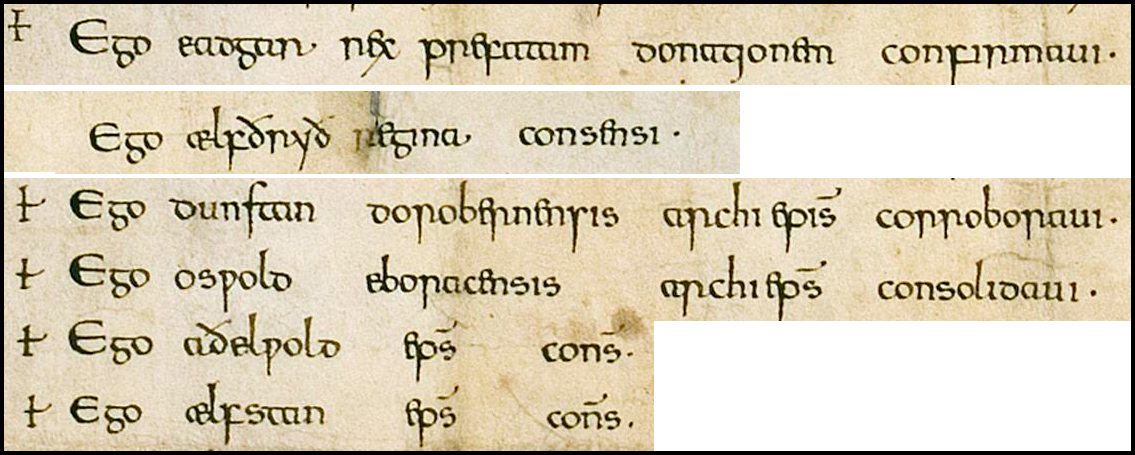 + Ego eadgar rex prefatam donationem confirmaui.
Ego ælfðryð regina consensi.
+ Ego dunstan dorobernensis archi epiſ̄ corroboraui.
+ Ego osƿold eboracensis archi ep̄s consolidaui.
+ Ego aðelƿold ep̄s cons̄.
+ Ego ælfstan ep̄s con̄s.